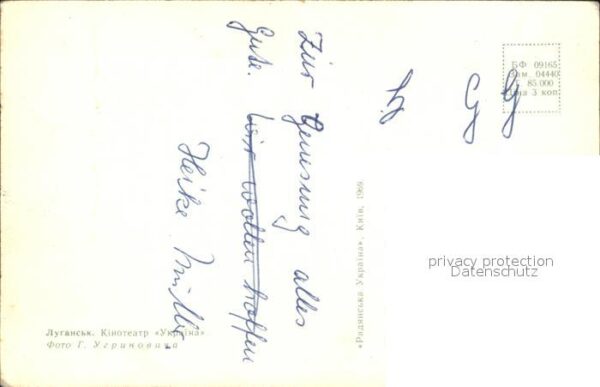 Zur Genesung alles
Gute. Wir wollen hoffen
Heike Müller
БФ 09165
Зам. 04440
Т. 85.000
Ціна 3 коп.
«Радянська Україна», Київ, 1969.
privacy protection
Datenschutz
Луганськ. Кінотеатр «Україна»
Фото Г. Угриновича